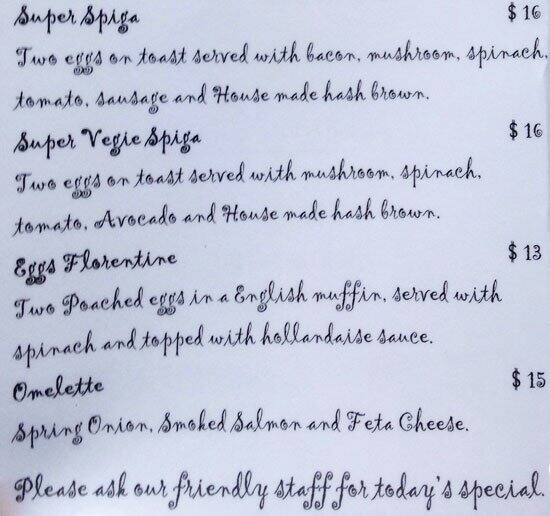 Super Spiga $16
Two eggs on toast served with bacon, mushroom, spinach,
tomato, sausage and House made hash brown.
Super Vegie Spiga $16
Two eggs on toast served with mushroom, spinach,
tomato, Avocado and House made hash brown.
Eggs Florentine $13
Two Poached eggs in a English muffin, served with
spinach and topped with hollandaise sauce.
Omelette $15
Spring Onion, Smoked Salmon and Feta Cheese.
Please ask our friendly staff for today's special.